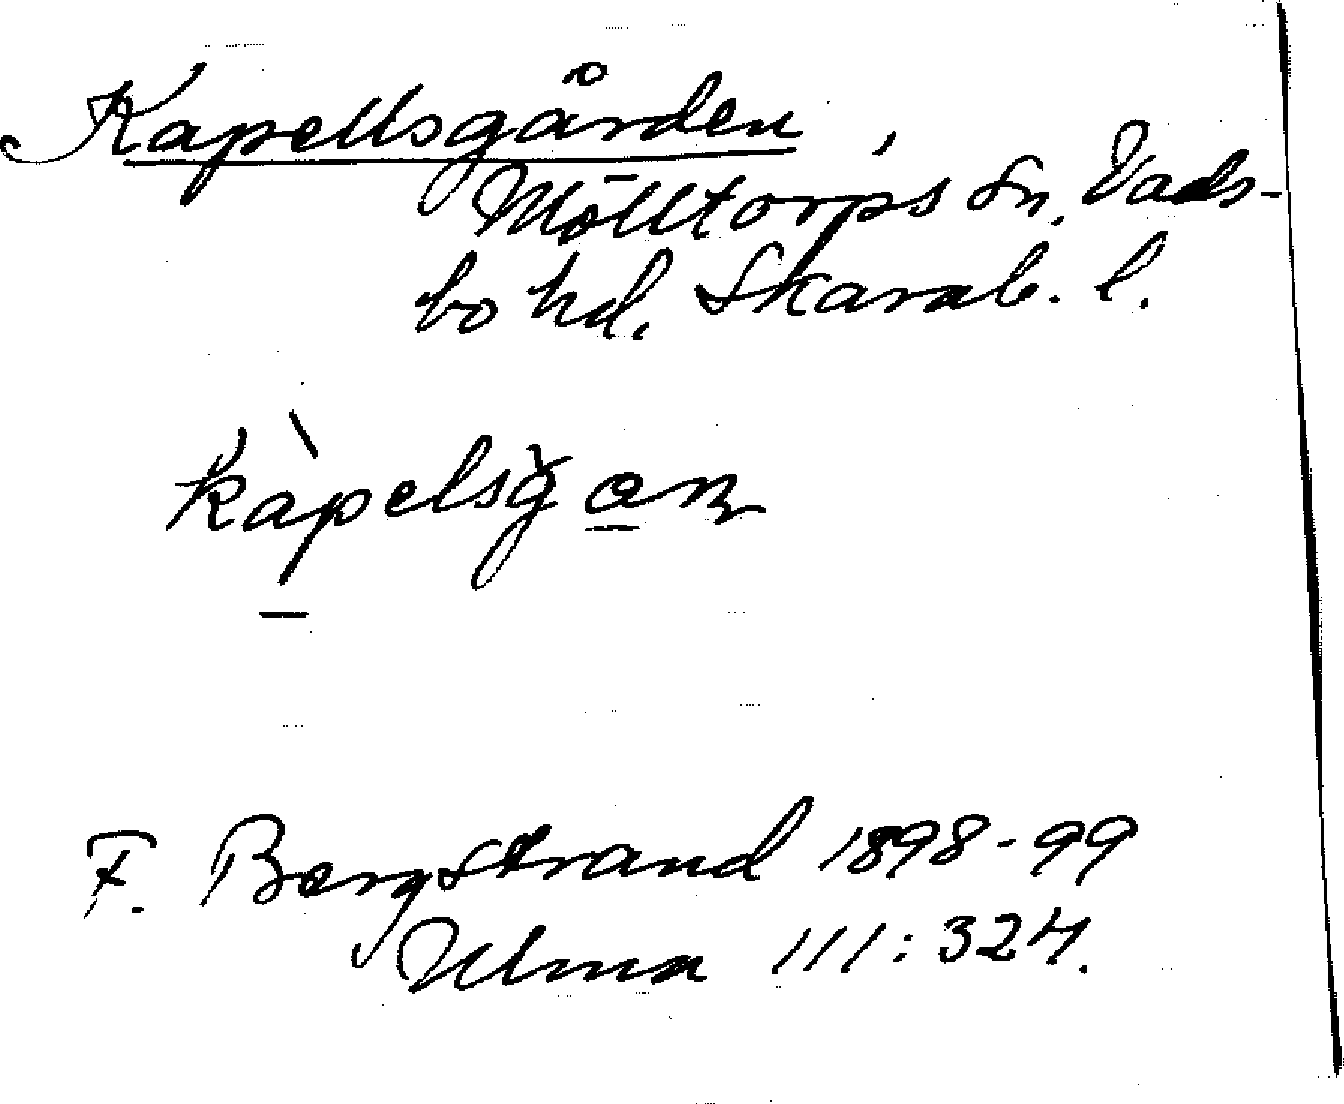 Kapellsgården,
Mölltorps sn, Vads-
bo hd. Skarab. l.
F. Bergstrand 1898-99
Ulma 111:324.